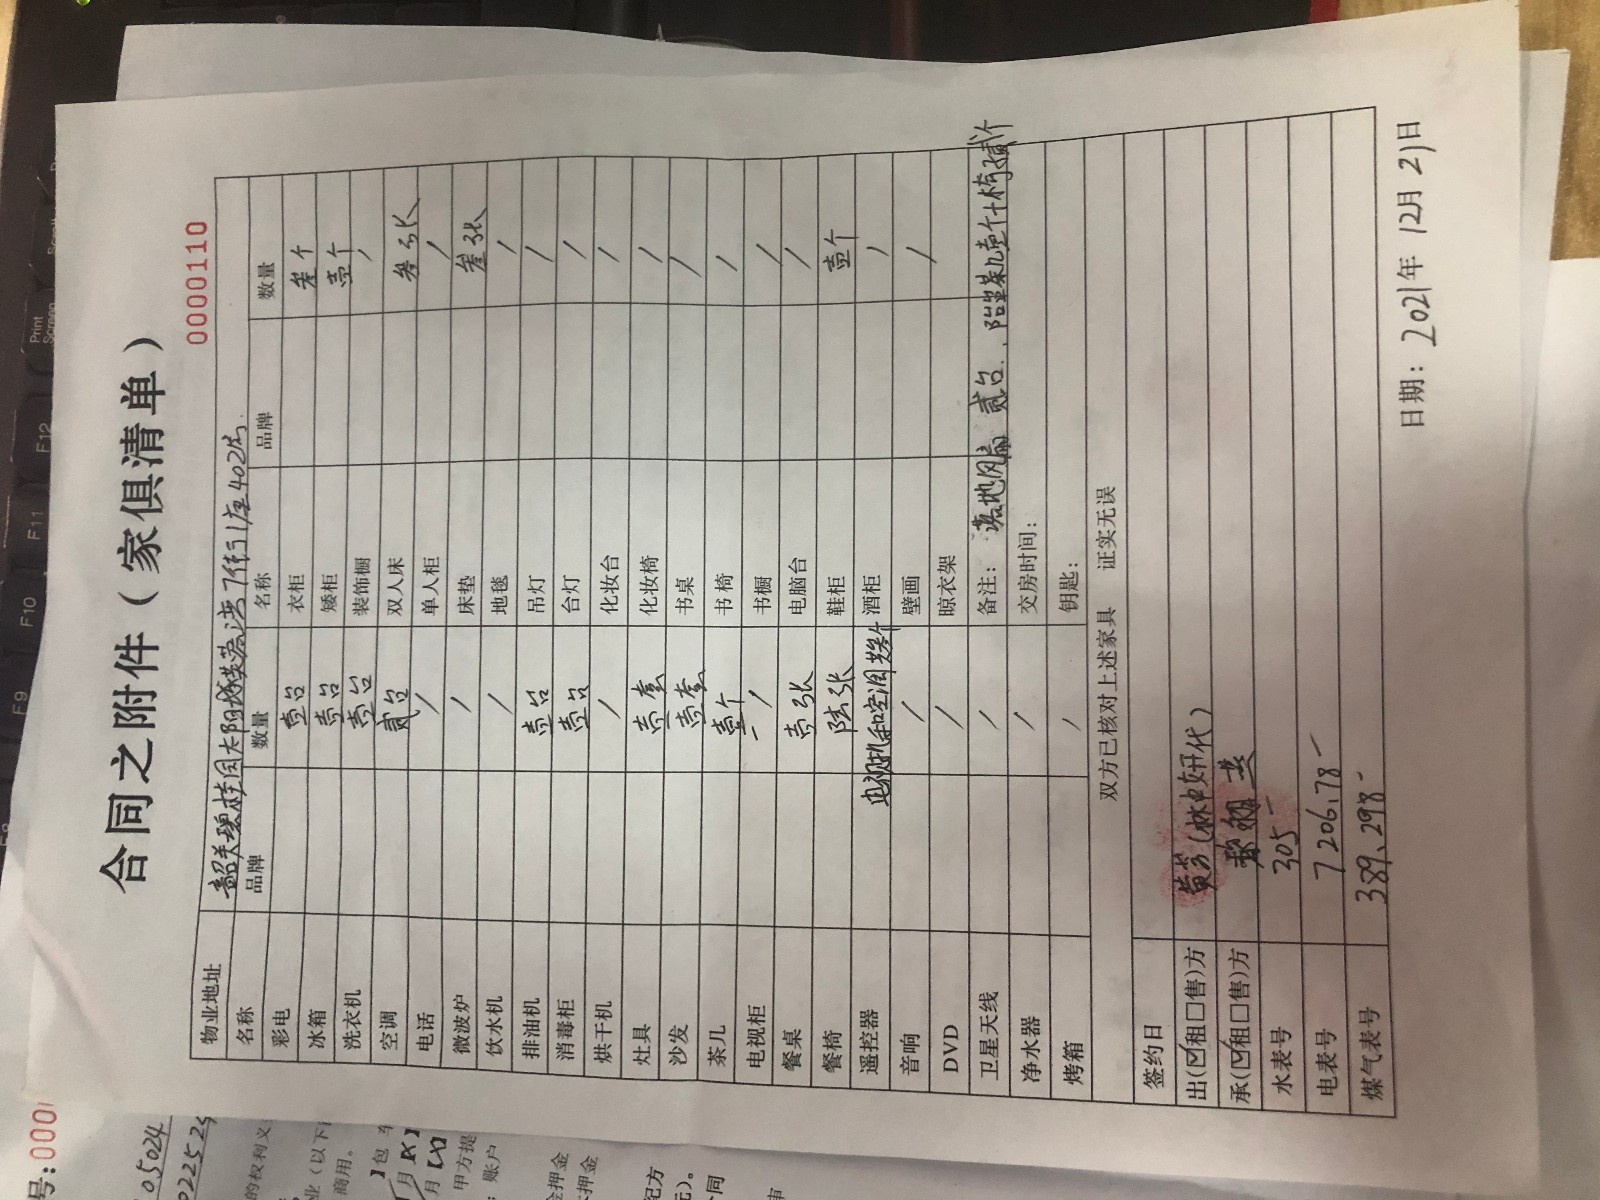 合同之附件（家俱清单）
0000110
物业地址 韶关碧桂园太阳城芙蓉湾7街1座402房
名称 品牌 数量 名称 品牌 数量
彩电 壹台 衣柜 叁个
冰箱 壹台 矮柜 壹个
洗衣机 壹台 装饰橱 /
空调 贰台 双人床 叁张
电话 / 单人柜 /
微波炉 / 床垫 叁张
饮水机 / 地毯 /
排油机 壹台 吊灯 /
消毒柜 壹台 台灯 /
烘干机 / 化妆台 /
灶具 壹套 化妆椅 /
沙发 壹套 书桌 /
茶几 壹个 书椅 /
电视柜 / 书橱 /
餐桌 壹张 电脑台 /
餐椅 陆张 鞋柜 壹个
遥控器 电视机和空调 酒柜 /
音响 / 壁画 /
DVD / 晾衣架
卫星天线 / 备注： 落地风扇贰台、
净水器 / 交房时间：
烤箱 / 钥匙：
双方已核对上述家具 证实无误
签约日
出(☑租□售)方 黄芳（林中妍代）
承(☑租□售)方
水表号 305-
电表号 7206.78-
煤气表号 389.298-
日期：2021年12月21日
Print
Screen
F12
F11
F10
F9
号:000
05024
的权利义
业（以下
商用。
】包
月【X】
月【X】
甲方提
；账户
押金
押金
配方
元）。